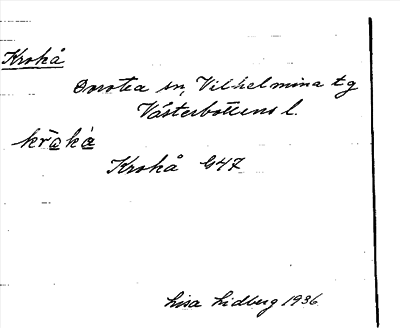 Krokå
Dorotea sn, Vilhelmina tg
Västerbottens l.
Krokå G47
Lisa Lidberg 1936